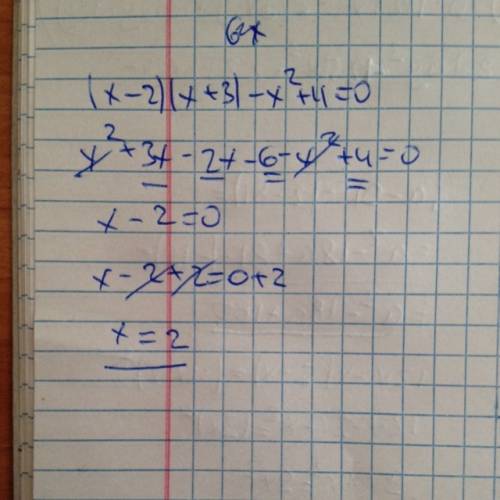 (x-2)(x+3)-x²+4=0
x²+3x-2x-6-x²+4=0
x-2=0
x-2+2=0+2
x=2